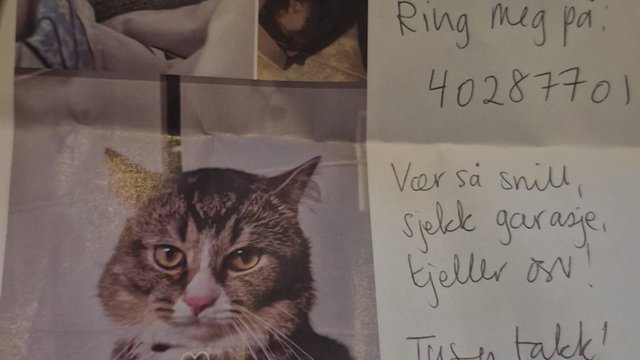 Ring meg på:
40287701
Vær så snill,
sjekk garasje,
kjeller osv!
Tusen takk!